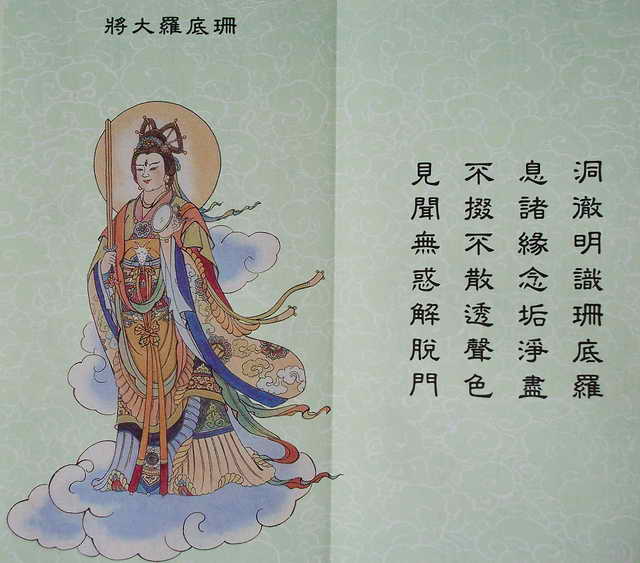 珊底羅大將
洞徹明識珊底羅
息諸緣念垢淨盡
不掇不散透聲色
見聞無惑解脫門